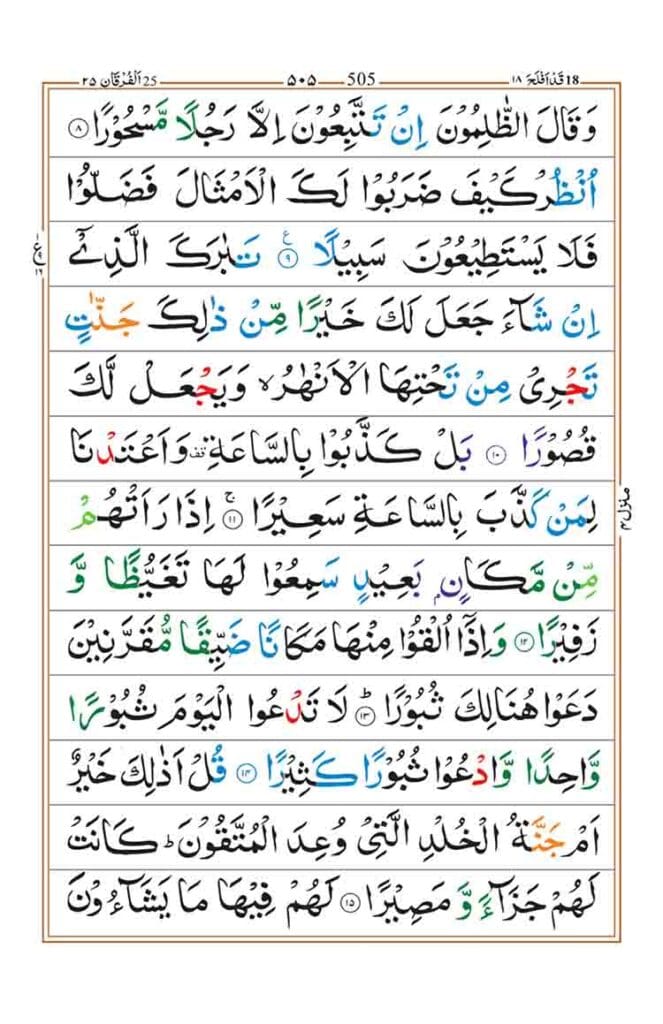 18 قَدْ اَفْلَحَ ١٨ 505 ۵۰۵ 25 اَلْفُرْقَان ٢٥
وَقَالَ الظّٰلِمُوْنَ اِنْ تَتَّبِعُوْنَ اِلَّا رَجُلًا مَّسْحُوْرًا ۝٨
اُنْظُرْ كَيْفَ ضَرَبُوْا لَكَ الْاَمْثَالَ فَضَلُّوْا
فَلَا يَسْتَطِيْعُوْنَ سَبِيْلًا ۝٩ تَبٰرَكَ الَّذِيْۤ
اِنْ شَآءَ جَعَلَ لَكَ خَيْرًا مِّنْ ذٰلِكَ جَنّٰتٍ
تَجْرِىْ مِنْ تَحْتِهَا الْاَنْهٰرُ ۙ وَيَجْعَلْ لَّكَ
قُصُوْرًا ۝١٠ بَلْ كَذَّبُوْا بِالسَّاعَةِ قف وَاَعْتَدْنَا
لِمَنْ كَذَّبَ بِالسَّاعَةِ سَعِيْرًا ۝١١ ج اِذَا رَاَتْهُمْ
مِّنْ مَّكَانٍۭ بَعِيْدٍ سَمِعُوْا لَهَا تَغَيُّظًا وَّ
زَفِيْرًا ۝١٢ وَاِذَاۤ اُلْقُوْا مِنْهَا مَكَانًا ضَيِّقًا مُّقَرَّنِيْنَ
دَعَوْا هُنَالِكَ ثُبُوْرًا ۝١٣ ط لَا تَدْعُوا الْيَوْمَ ثُبُوْرًا
وَّاحِدًا وَّادْعُوْا ثُبُوْرًا كَثِيْرًا ۝١٤ قُلْ اَذٰلِكَ خَيْرٌ
اَمْ جَنَّةُ الْخُلْدِ الَّتِىْ وُعِدَ الْمُتَّقُوْنَ ؕ كَانَتْ
لَهُمْ جَزَآءً وَّ مَصِيْرًا ۝١٥ لَهُمْ فِيْهَا مَا يَشَآءُوْنَ
منزل ٤